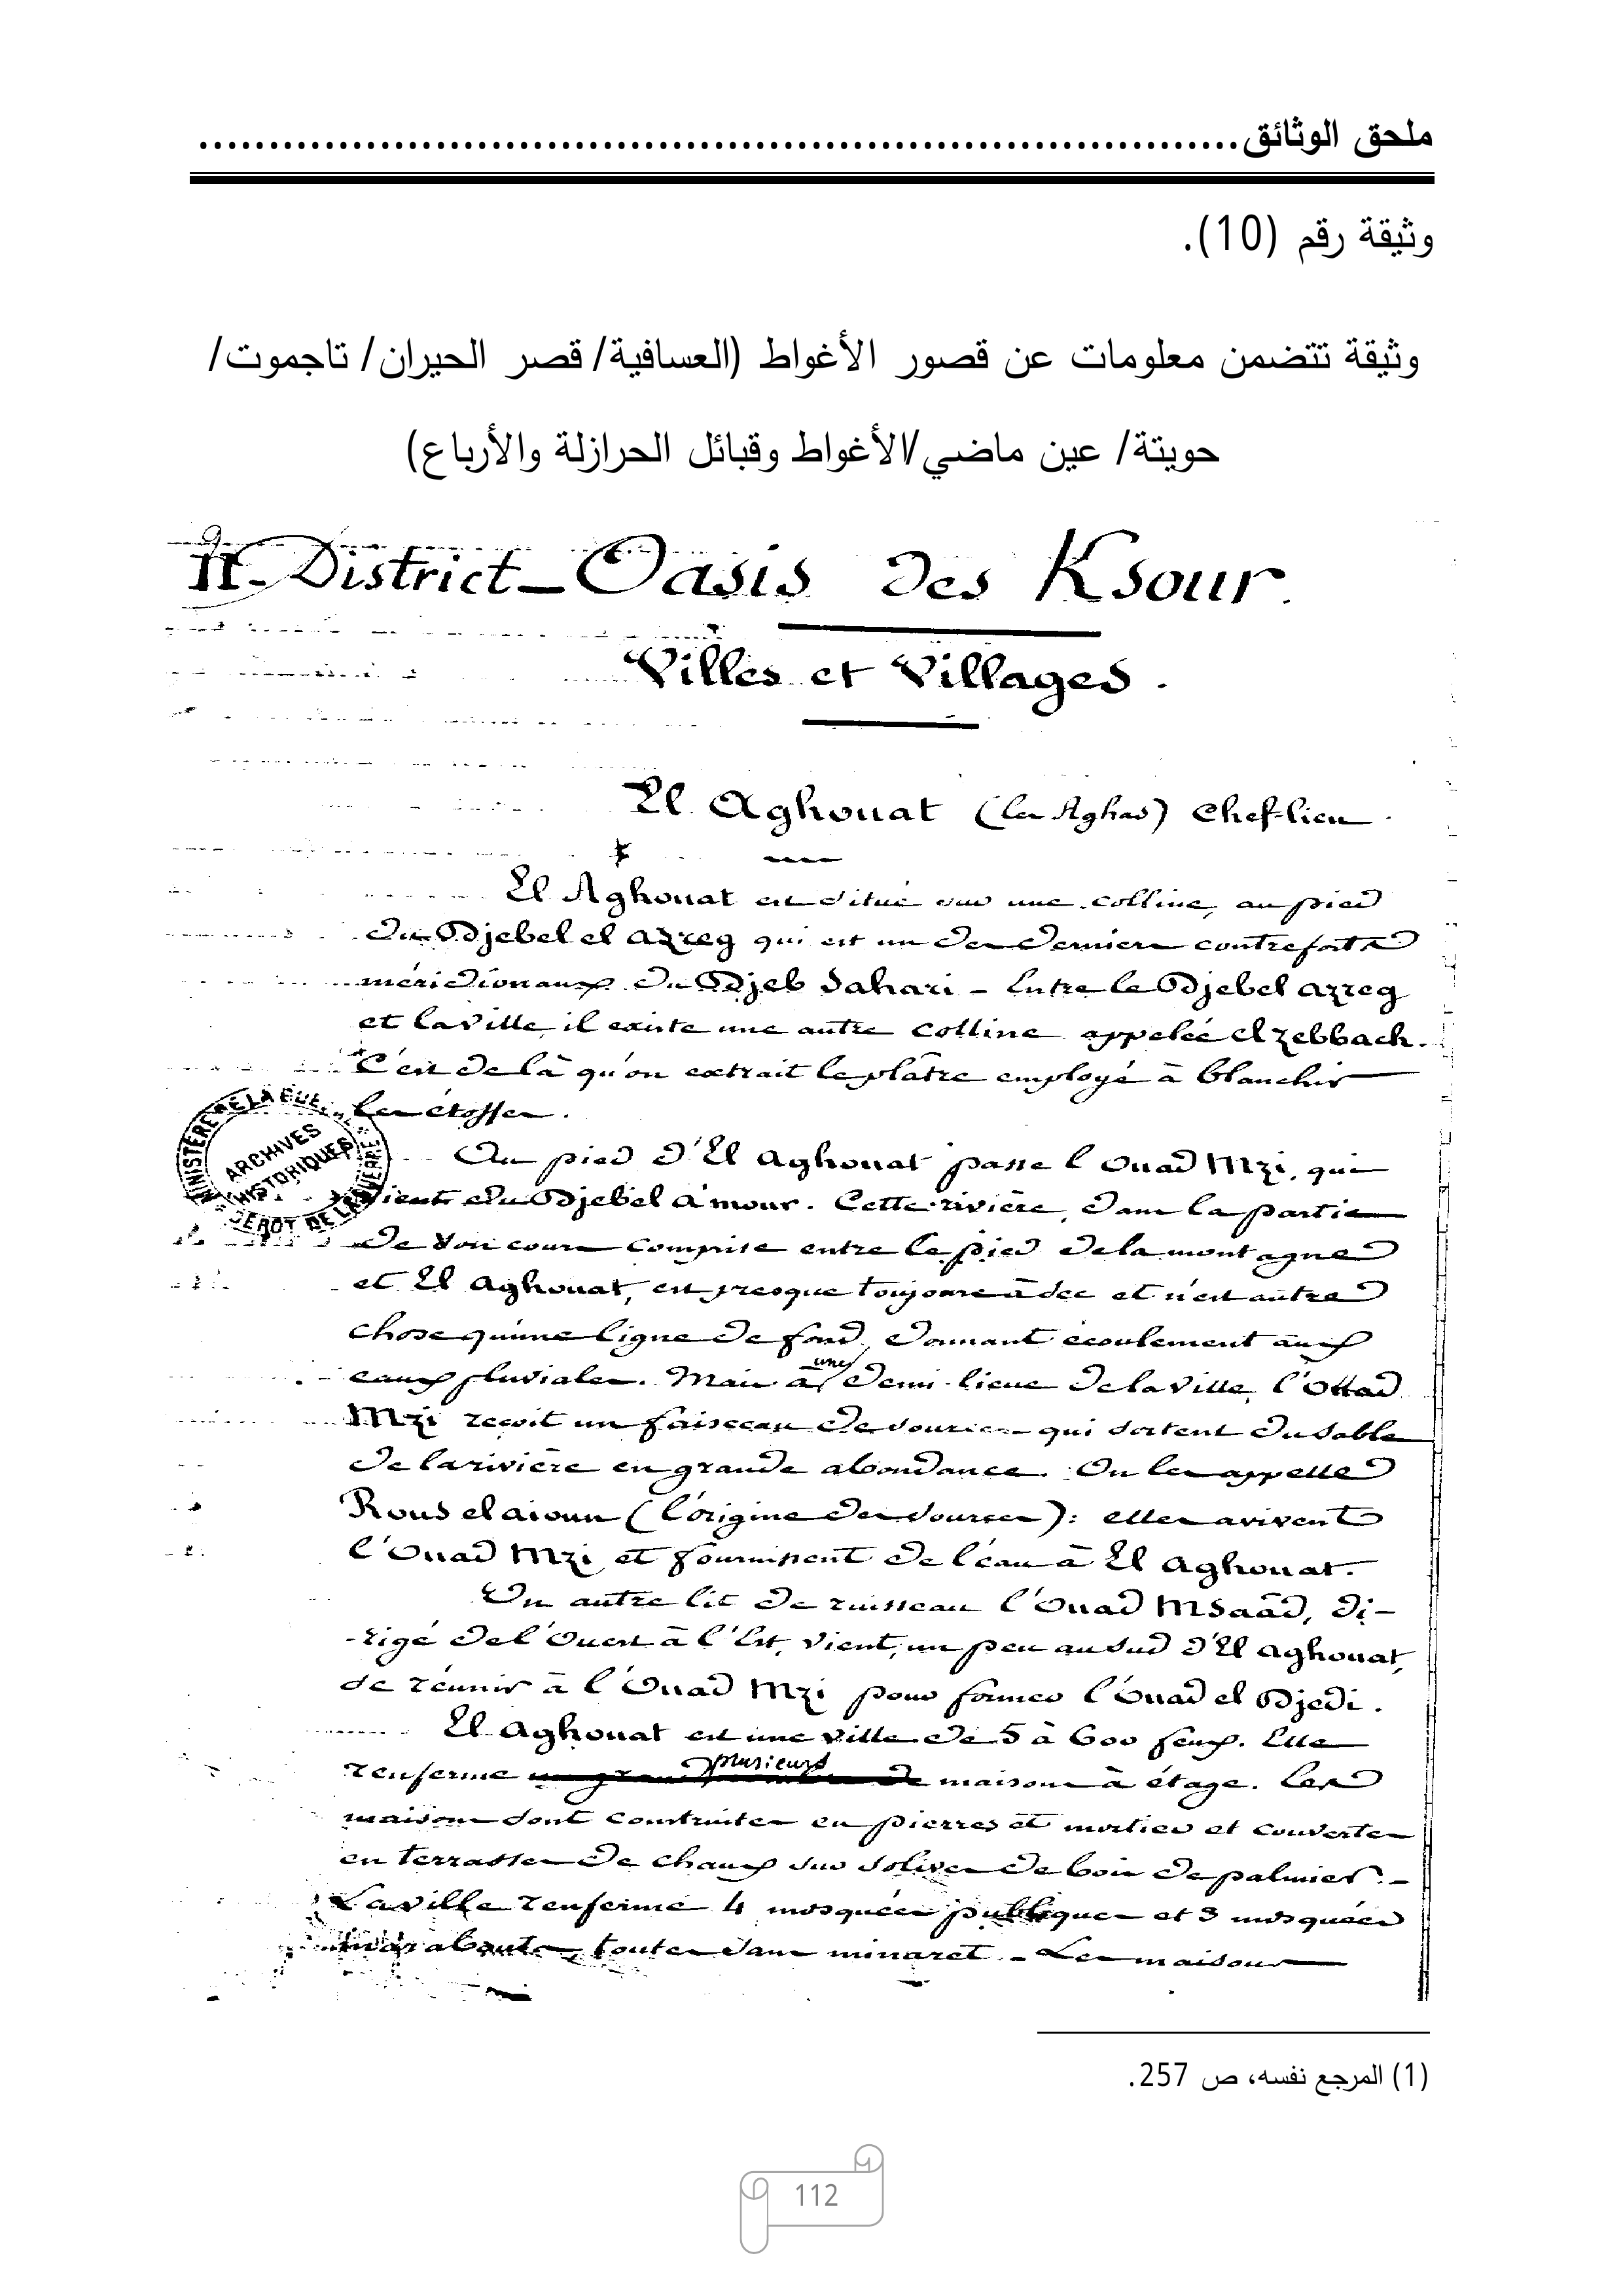 ملحق الوثائق................................................................................
وثيقة رقم (10).
وثيقة تتضمن معلومات عن قصور الأغواط (العسافية/ قصر الحيران/ تاجموت/
حويتة/ عين ماضي/الأغواط وقبائل الحرازلة والأرباع)
II. District _ Oasis des Ksour.
Villes et Villages.
El Aghouat (les Aghas) Chef-lieu
El Aghouat est situé sur une colline, au pied
du Djebel el azreg qui est un des derniers contreforts
méridionaux du Djeb Sahari - Entre le Djebel azreg
et la ville, il existe une autre colline appelée el zebbach.
C'est de là qu'on extrait le plâtre employé à blanchir
les étoffes.
MINISTÈRE DE LA GUERRE
ARCHIVES
HISTORIQUES
DÉPOT DE LA GUERRE
Au pied d'El Aghouat passe l'Ouad Mzi, qui
vient du Djebel amour. Cette rivière, dans la partie
de son cours comprise entre le pied de la montagne
et El Aghouat, est presque toujours à sec et n'est autre
chose qu'une ligne de fond, donnant écoulement aux
eaux pluviales. Mais à une demi-lieue de la ville, l'Ouad
Mzi reçoit un faisceau de sources qui sortent du sable
de la rivière en grande abondance. On les appelle
Rous el aioun (l'origine des sources): elles avivent
l'Ouad Mzi et fournissent de l'eau à El Aghouat.
Un autre lit de ruisseau l'Ouad Msaâd, di-
-rigé de l'Ouest à l'Est, vient, un peu au sud d'El Aghouat,
se réunir à l'Ouad Mzi pour former l'Ouad el Djedi.
El Aghouat est une ville de 5 à 600 feux. Elle
renferme plusieurs maisons à étage. Les
maisons sont construites en pierres et mortier et couvertes
en terrasses de chaux sur solives de bois de palmier. -
La ville renferme 4 mosquées publiques et 3 mosquées
toutes sans minaret. - Les maisons
(1) المرجع نفسه، ص 257.
112